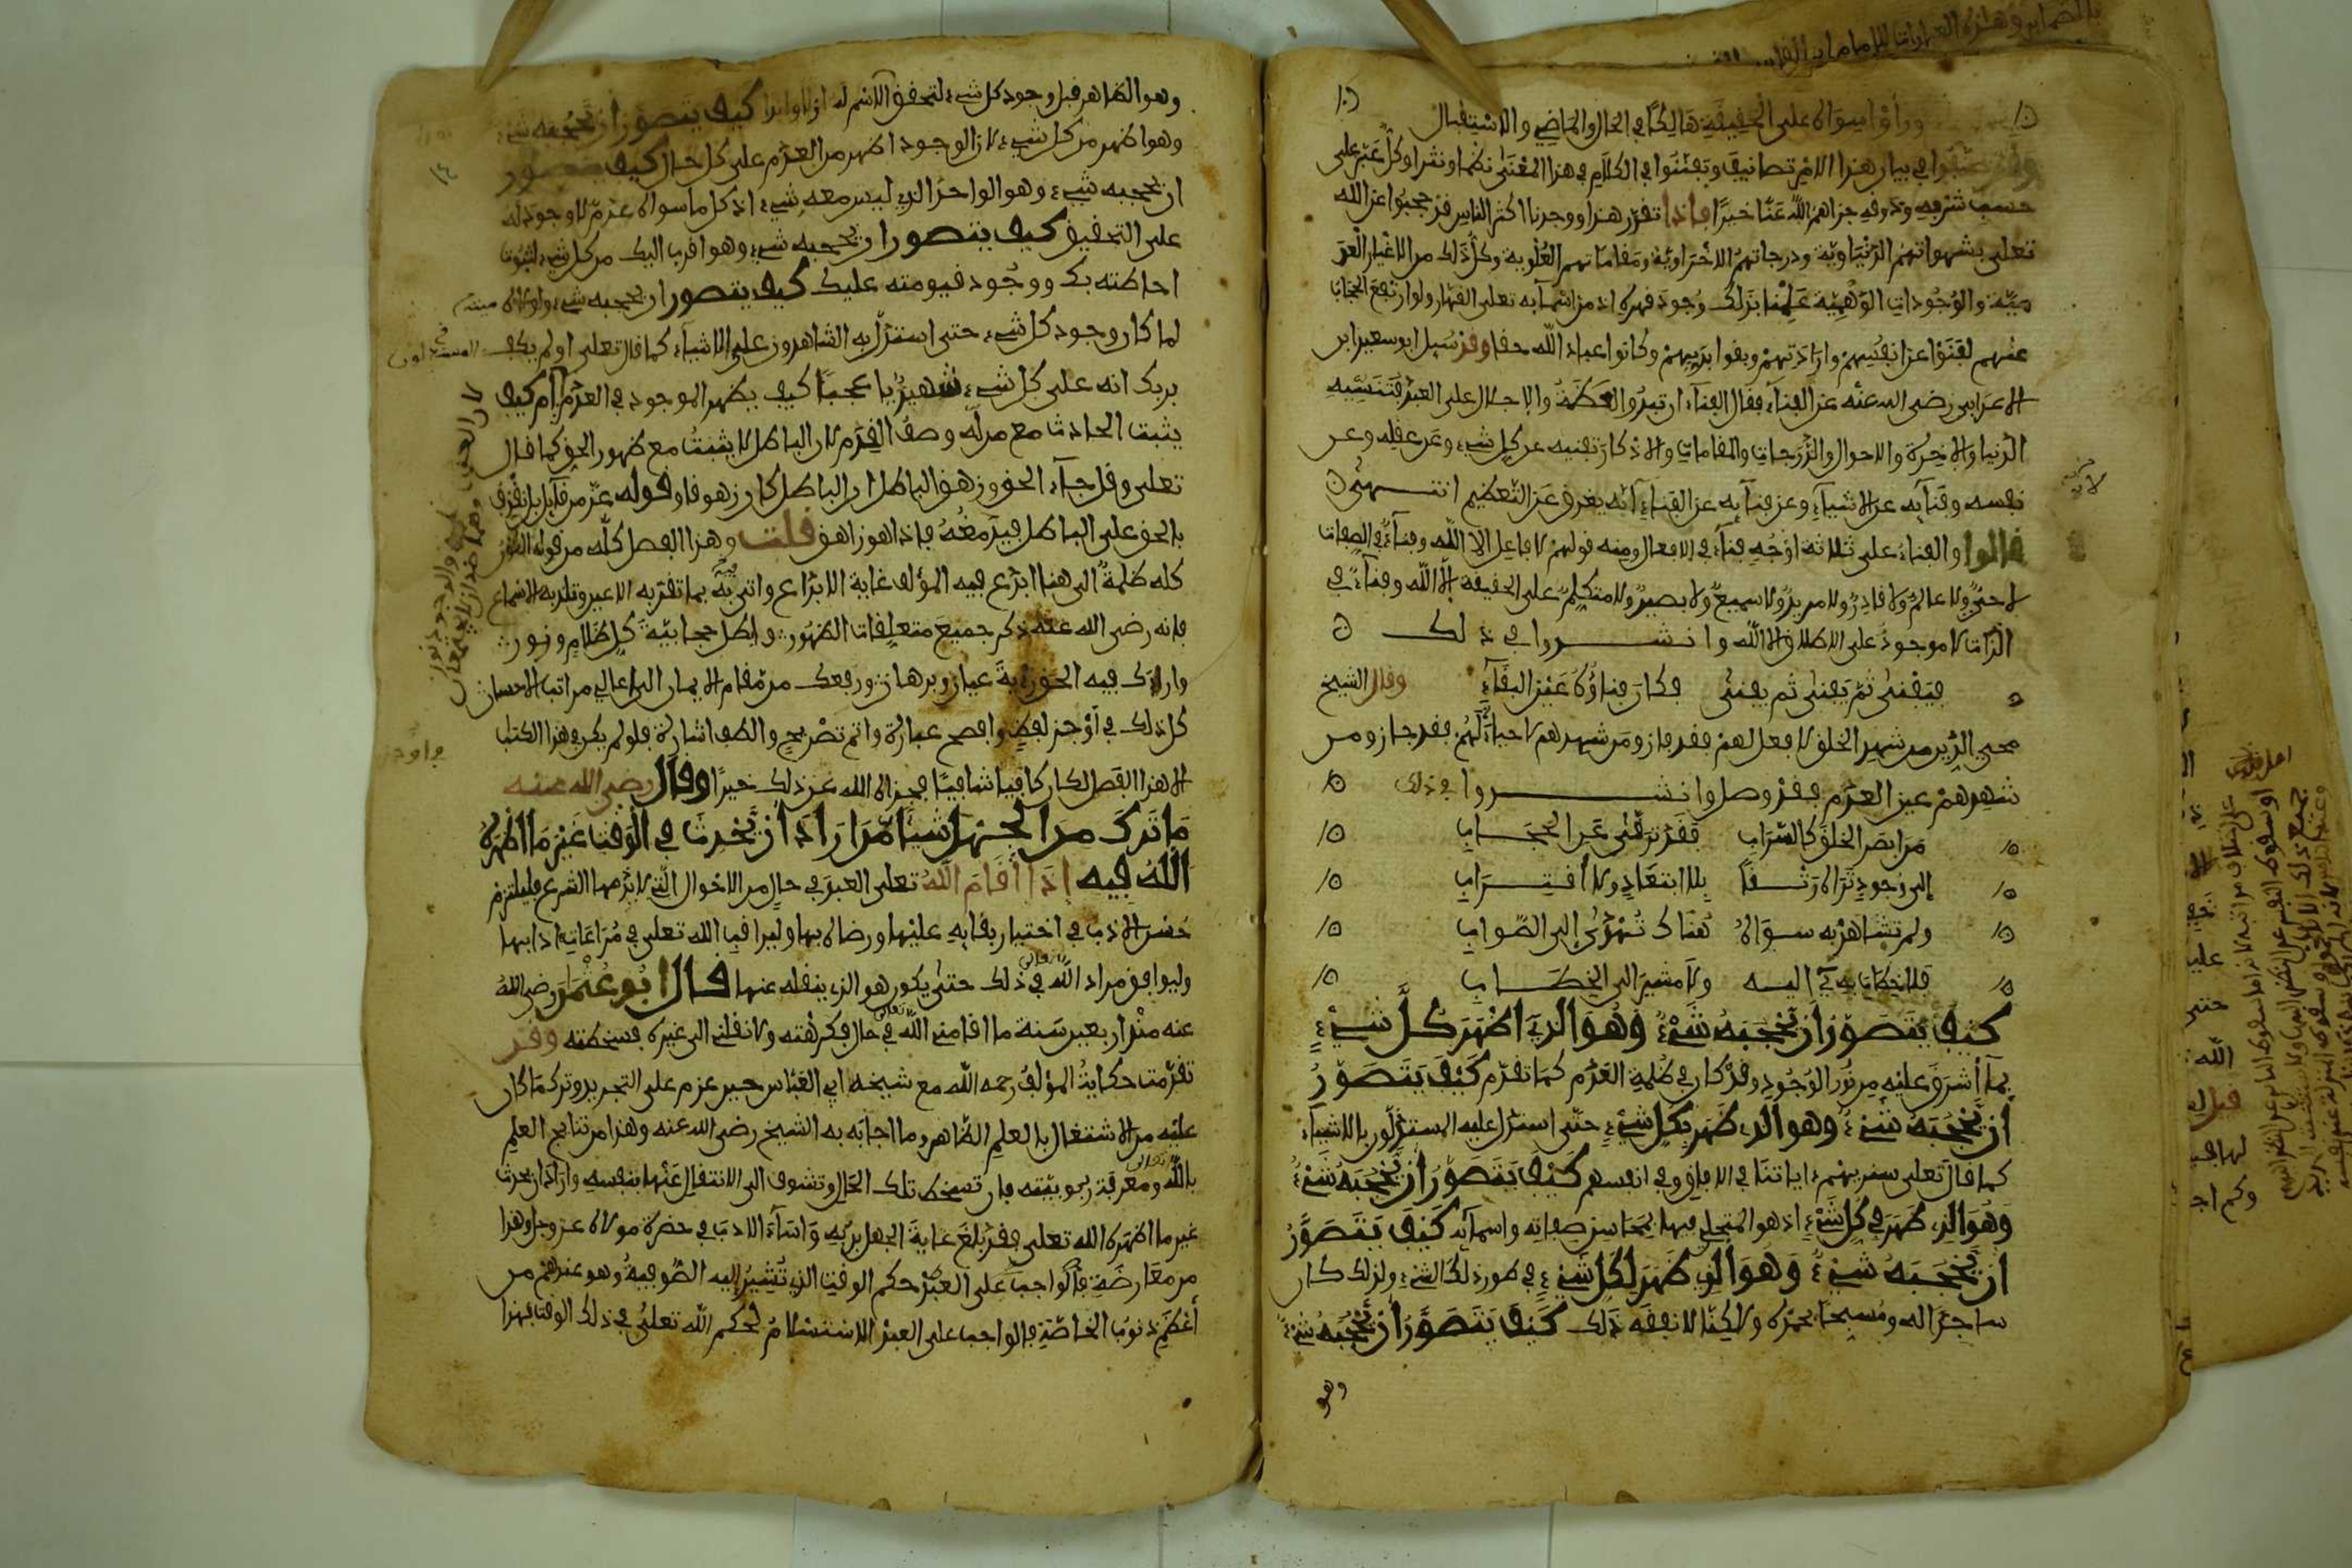 ورأوا سواه على الحقيقة هالكا في الحال والماضي والاستقبال
في بيان هذا الامر تصانيف وتفننوا في الكلام في هذا المعنى نظما ونثرا وكل عبر على
حسب شربه وذوقه جزاهم الله عنا خيرا فاذا تقرر هذا ووجدنا اكثر الناس قد حجبوا عن الله
تعلى بشهواتهم الدنياوية ودرجاتهم الاخراوية ومقاماتهم العلوية وكل ذلك من الاغيار العد
مية والوجودات الوهمية علمنا بذلك وجود قهره اذ من اسمآيه تعلى القهار ولو ارتفع الحجاب
عنهم لفنوا عن انفسهم وارادتهم وبقوا بربهم وكانوا عباد الله حقا وقد سيل ابو سعيد ابن
الاعرابي رضى الله عنه عن الفنآء فقال الفنآء ان تبدو العظمة والاجلال على العبد فتنسيه
الدنيا والاخرة والاحوال والدرجات والمقامات والاذكار تفنيه عن كل شيء وعن عقله وعن
نفسه وفنآيه عن الاشيآء وعن فنآيه عن الفناء لانه يغرق في التعظيم انتهى
قالوا والفناء على ثلاثة اوجه فناء في الافعال ومنه قولهم لا فاعل الا الله وفناء في الصفات
لا حي ولا عالم ولا قادر ولا مريد ولا سميع ولا بصير ولا متكلم على الحقيقة الا الله وفنآء في
الذات لا موجود على الاطلاق الا الله وانشدوا في ذلك
فيفنى ثم يفنى ثم يفنى فكان فناؤه عين البقآء وقال الشيخ
محيي الدين من شهد الخلق لا فعل لهم فقد فاز ومن شهدهم لا حياة لهم فقد جاز ومن
شهدهم عين العدم فقد وصل وانشدوا في ذلك
من ابصر الخلق كالسراب فقد ترقى عن الحجاب
الى وجود تراه رتقا بلا ابتعاد ولا اقتراب
ولم تشاهد به سواه هناك تهدى الى الصواب
فلا خطاب به اليه ولا مشير الى الخطاب
كيف يتصور ان يحجبه شيء وهو الذي اظهر كل شيء
بما أشرق عليه من نور الوجود وقد كان في ظلمة العدم كما تقدم كيف يتصور
أن يحجبه شيء وهو الذي ظهر بكل شيء حتى استدل عليه المستدلون بالاشيآء
كما قال تعلى سنريهم ءاياتنا في الافاق وفي انفسهم كيف يتصور أن يحجبه شيء
وهو الذي ظهر في كل شيء اذ هو المتجلي فيها بمحاسن صفاته واسمآيه كيف يتصور
ان يحجبه شيء وهو الذي ظهر لكل شيء في طور ذلك الشيء ولذلك كان
ساجدا له ومسبحا بحمده ولاكنا لا نفقه ذلك كيف يتصور أن يحجبه شيء
وهو
وهو الظاهر قبل وجود كل شيء لتحقق الاسم له ازلا وابدا كيف يتصور ان يحجبه شيء
وهو اظهر من كل شيء لان الوجود اظهر من العدم على كل حال كيف يتصور
ان يحجبه شيء وهو الواحد الذي ليس معه شيء اذ كل ما سواه عدم لا وجود له
على التحقيق كيف يتصور ان يحجبه شيء وهو اقرب اليك من كل شيء لثبوت
احاطته بك ووجود قيومته عليك كيف يتصور ان يحجبه شيء ولولاه
لما كان وجود كل شيء حتى استدل به الشاهدون على الاشيآء كما قال تعلى اولم يكف
بربك انه على كل شيء شهيد يا عجبا كيف يظهر الموجود في العدم أم كيف
يثبت الحادث مع من له وصف القدم لان الباطل لا يثبت مع ظهور الحق كما قال
تعلى وقل جآء الحق وزهق الباطل ان الباطل كان زهوقا وقوله عز من قآيل بل نقذف
بالحق على الباطل فيدمغه فاذا هو زاهق قلت وهذا الفصل كله من قوله الكون
كله ظلمة الى هنا ابدع فيه المؤلف غاية الابداع واتى فيه بما تقر به الاعين وتلذ به الاسماع
فانه رضى الله عنه ذكر جميع متعلقات الظهور وابطل حجابية كل ظلام ونور
واراك فيه الحق رؤية عيان وبرهان ورفعك من مقام الايمان الى اعالي مراتب الاحسان
كل ذلك في أوجز لفظ وافصح عبارة واتم تصريح والطف اشارة فلو لم يكن في هذا الكتاب
الا هذا الفصل لكان كافيا شافيا فجزاه الله عن ذلك خيرا وقال رضى الله عنه
ما ترك من الجهل شيئا من اراد ان يحدث في الوقت غير ما اظهره
الله فيه إذا أقام الله تعلى العبد في حال من الاحوال التي لا يذمها الشرع فليلتزم
حسن الادب في اختيار بقايه عليها ورضاه بها وليراقب الله تعلى في مراعات ادابها
وليوافق مراد الله تعالى في ذلك حتى يكون هو الذي ينقله عنها قال ابو عثمن رضى الله
عنه منذ اربعين سنة ما اقامني الله تعالى في حال فكرهته ولا نقلني الى غيره فسخطته وقد
تقدمت حكاية المؤلف رحمه الله مع شيخه ابي العباس حين عزم على التجريد وترك ما كان
عليه من الاشتغال بالعلم الظاهر وما اجابه به الشيخ رضى الله عنه وهذا من نتايج العلم
بالله تعالى ومعرفة ربوبيته فان تسخط تلك الحال وتشوف الى الانتقال عنها بنفسه واراد ان يحدث
غير ما اظهره الله تعلى فقد بلغ غاية الجهل بربه وأساء الادب في حضرة مولاه عز وجل وهذا
من معارضة حكم الوقت الذي تشير إليه الصوفية وهو عندهم من
أعظم ذنوب الخاصة فالواجب على العبد الاستسلام لحكم الله تعلى في ذلك الوقت فهذا